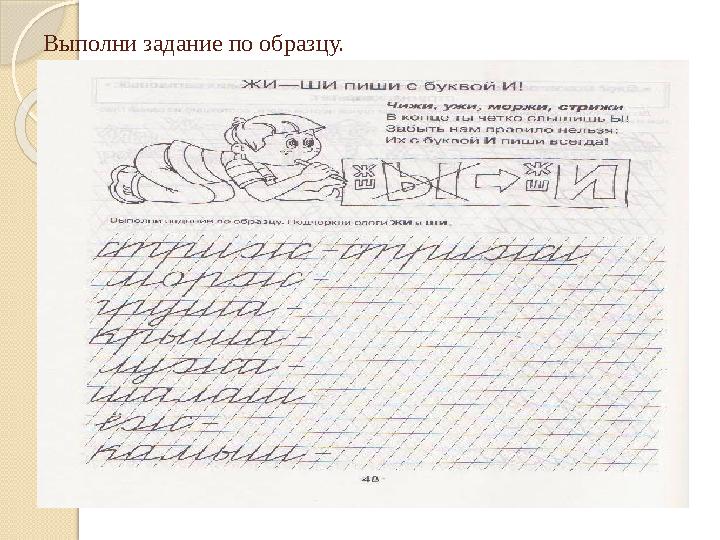 Выполни задание по образцу.
ЖИ—ШИ пиши с буквой И!
Чижи, ужи, моржи, стрижи
В конце ты чётко слышишь Ы!
Забыть нам правило нельзя:
Их с буквой И пиши всегда!
Ж Ш Ы Ж Ш И
Выполни задание по образцу. Подчеркни слоги жи и ши.
стриж - стрижи
морж -
груша -
крыша -
лужа -
шалаш
ёж -
камыш -
48